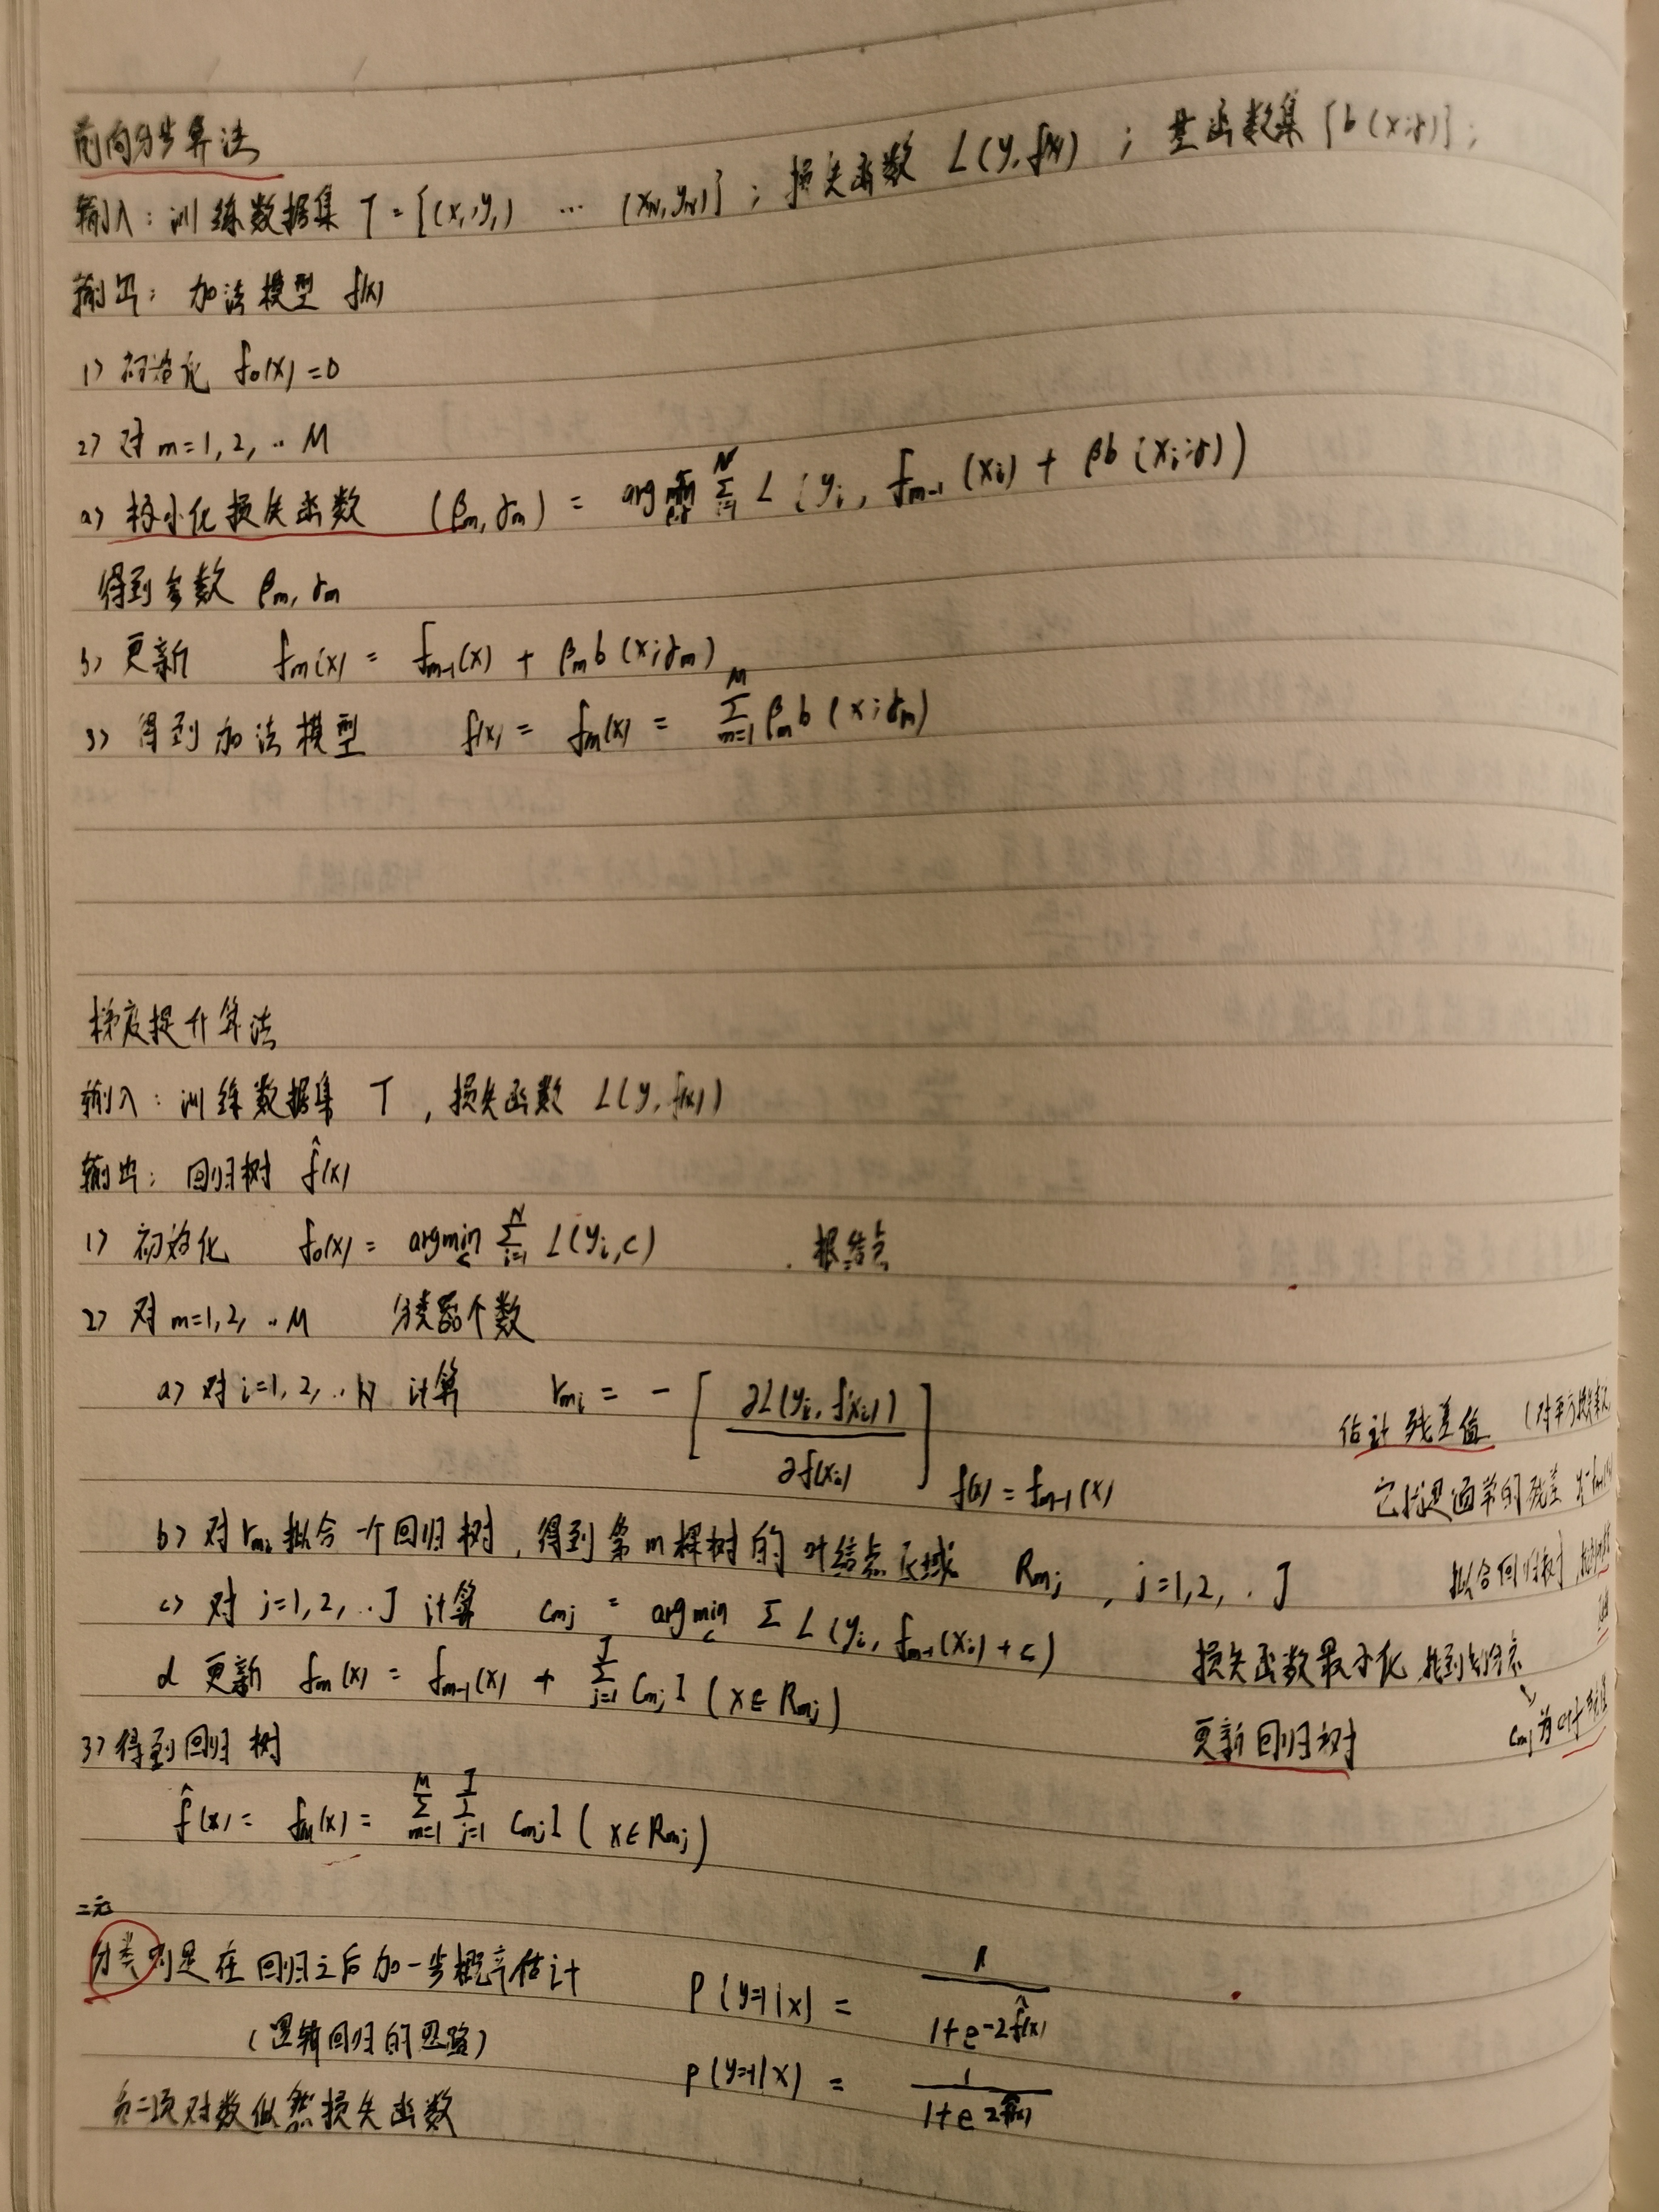 前向分步算法
输入：训练数据集 T = {(x₁,y₁) ... (x_N,y_N)}；损失函数 L(y,f(x))；基函数集 {b(x;γ)}；
输出：加法模型 f(x)
1) 初始化 f₀(x)=0
2) 对 m=1,2,..M
a) 极小化损失函数 (β_m,γ_m) = argmin_{β,γ} Σ_{i=1}^{N} L(y_i, f_{m-1}(x_i) + βb(x_i;γ))
得到参数 β_m,γ_m
b) 更新 f_m(x) = f_{m-1}(x) + β_m b(x;γ_m)
3) 得到加法模型 f(x) = f_m(x) = Σ_{m=1}^{M} β_m b(x;γ_m)
梯度提升算法
输入：训练数据集 T，损失函数 L(y,f(x))
输出：回归树 f̂(x)
1) 初始化 f₀(x) = argmin_c Σ_{i=1}^{N} L(y_i,c) 根结点
2) 对 m=1,2,..M 分类器个数
a) 对 i=1,2,..N 计算 r_{mi} = -[∂L(y_i,f(x_i))/∂f(x_i)]_{f(x)=f_{m-1}(x)} 估计残差值（对平方损失
它就是通常的残差
b) 对 r_{mi} 拟合一个回归树，得到第m棵树的叶结点区域 R_{mj}，j=1,2,.J 拟合回归树
c) 对 j=1,2,..J 计算 c_{mj} = argmin_c Σ L(y_i, f_{m-1}(x_i)+c) 损失函数最小化 找到
d 更新 f_m(x) = f_{m-1}(x) + Σ_{j=1}^{J} c_{mj} I(x∈R_{mj}) 更新回归树 c_{mj} 为
3) 得到回归树
f̂(x) = f_M(x) = Σ_{m=1}^{M} Σ_{j=1}^{J} c_{mj} I(x∈R_{mj})
二元
分类则是在回归之后加一步概率估计 P(y=1|x) = 1/(1+e^{-2f̂(x)})
（逻辑回归的思路）
负二项对数似然损失函数 P(y=-1|x) = 1/(1+e^{2f̂(x)})